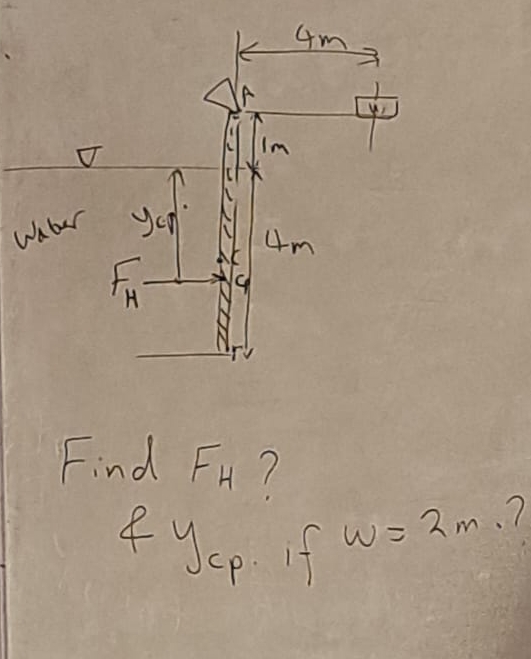 4m
A
W
1m
Water
ycp.
4m
C
FH
cp
Find FH ?
& ycp. if w = 2m. ?